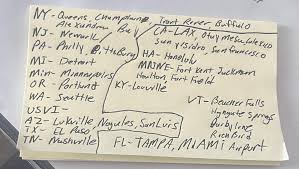 NY- Queens, Champlain,
Alexandria Bay
NJ- Newark
PA- Philly, Pittsburg
MI- Detroit
Min- Minneapolis
OR- Portland
WA- Seattle
USVI-
AZ- Lukville Nogules, San Luis
TX- El Paso
TN- Nashville
Trout River Buffulo
CA- LAX, Otay Mesa, Calexico
San Ysidro, San francisco
HA- Honolulu
MAINE- Fort Kent, Jackman
Houlton, Fort Field
KY- Louville
VT- Beecher Falls
Highgate Springs
Derby Line
Richford
FL- TAMPA, MIAMI Airport